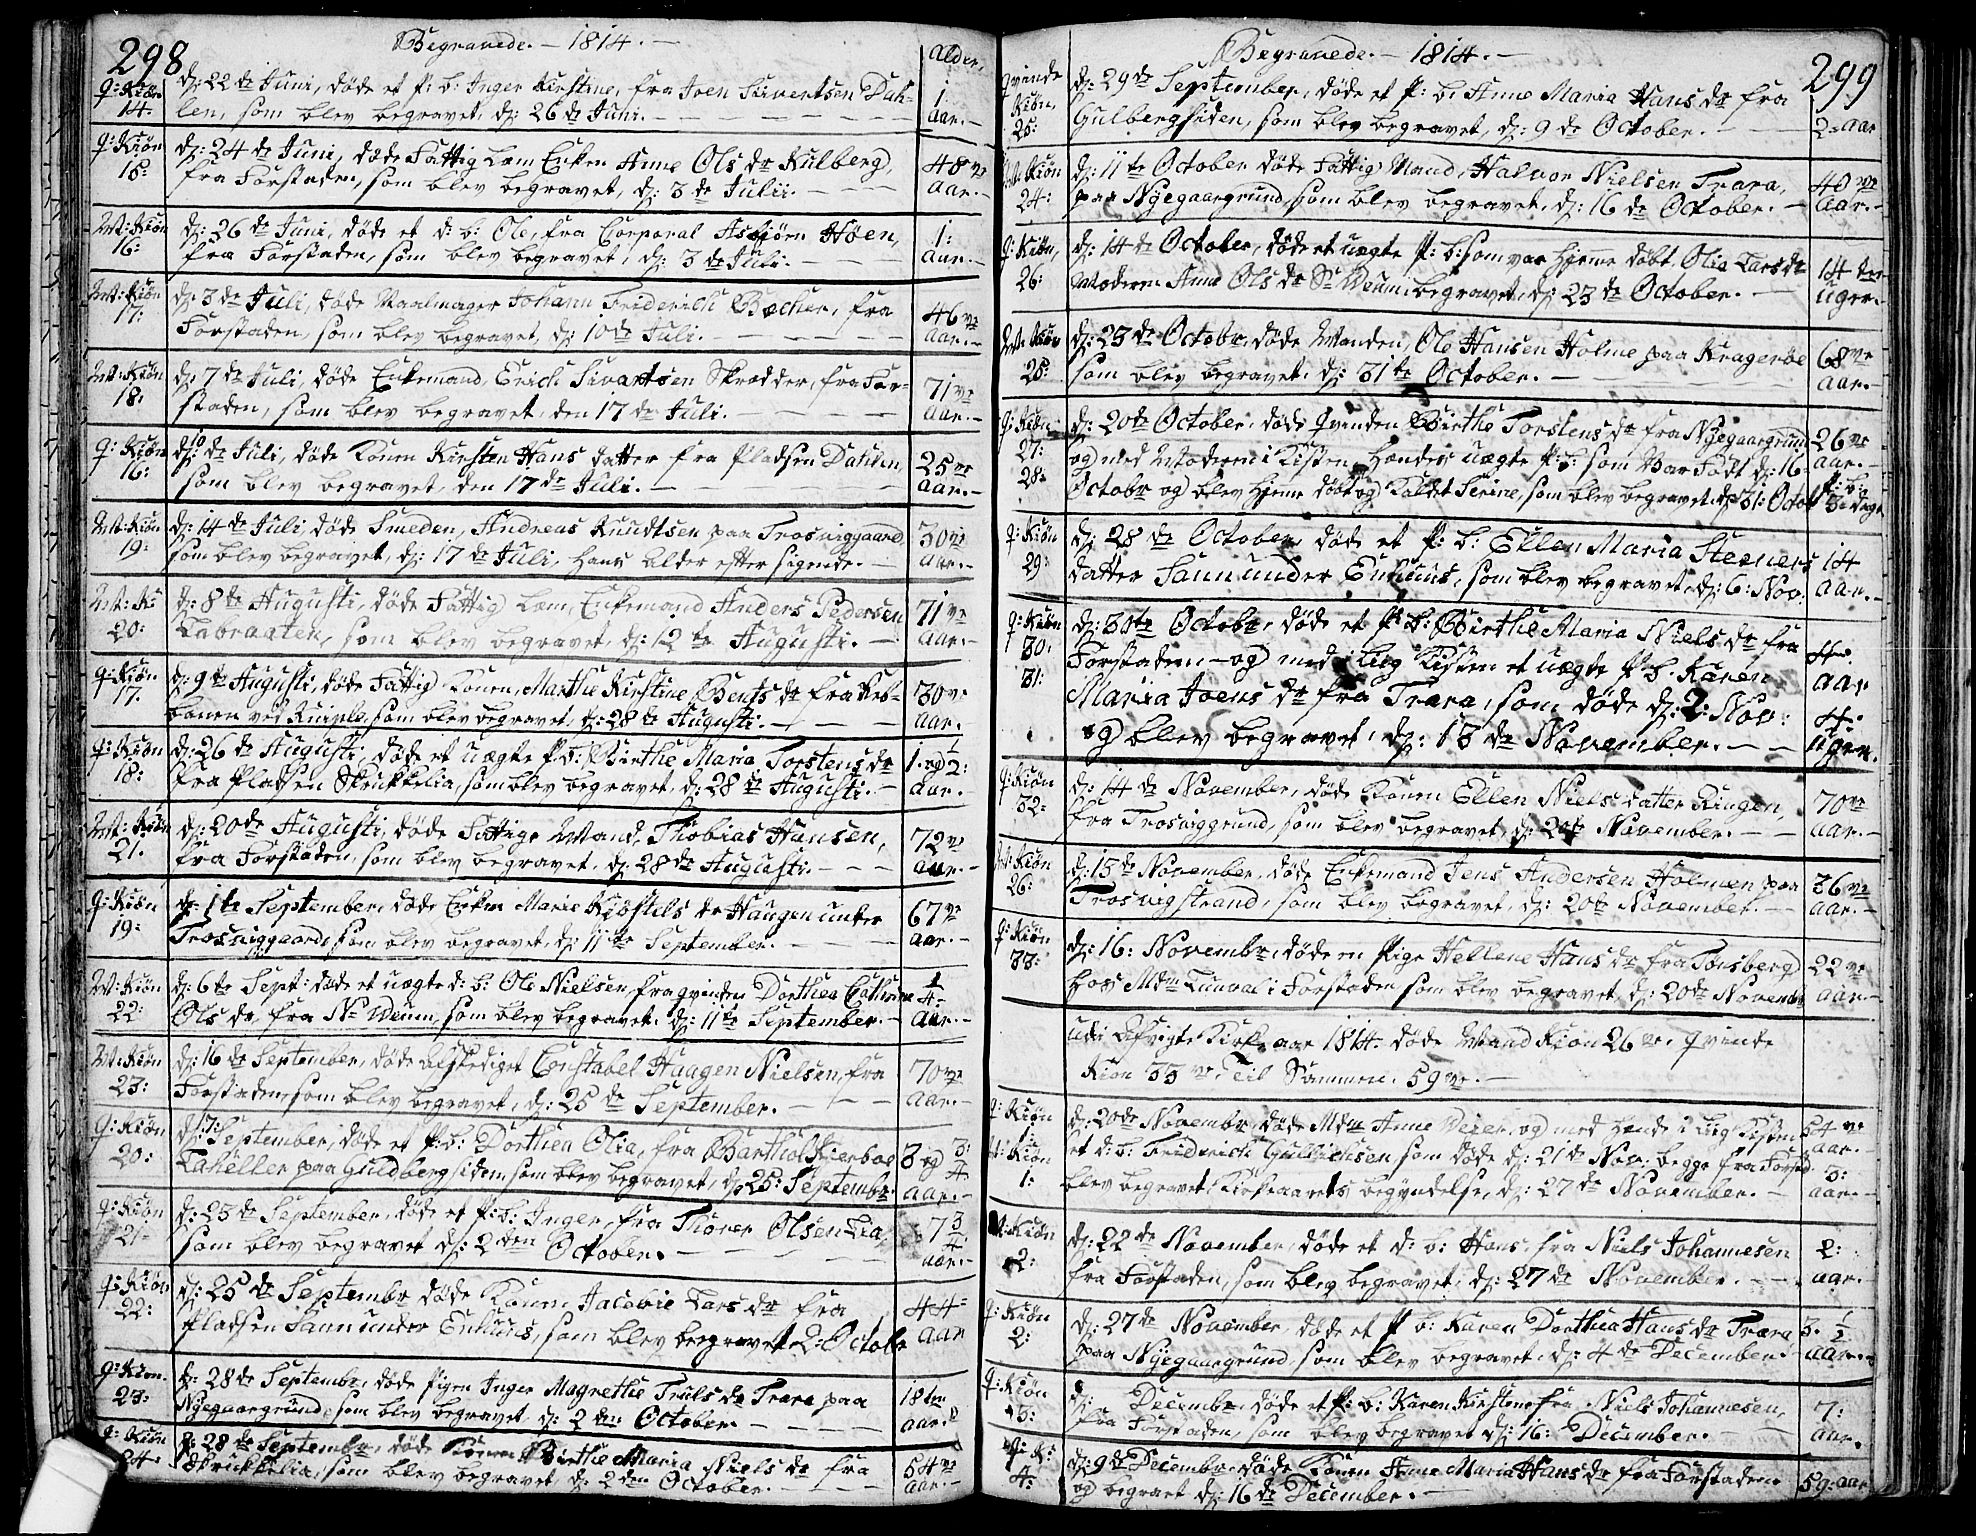 298
Begravede. – 1814. –
Alder.
Q: Kiøn 14. d: 22de Juni, døde et P: b: Inger Kirstine, fra Joen Sivertsen Dah-
len, som blev begravet, d: 26de Juni. – 1: Aar. –
Q: Kiøn 15: d: 24de Juni, døde Fattig Lem Enken Anne Olsdr Kulberg,
fra Forstaden, som blev begravet, d: 3de Julii. – 48ve Aar. –
M: Kiøn 16: d: 26de Juni, døde et d: b: Ole, fra Corporal Asbiørn Høen,
fra Forstaden, som blev begravet, d: 3de Juli. – 1: Aar. –
M: Kiøn 17: d: 3de Juli, døde Johann Friderich Becher, fra
Forstaden, som blev begravet, d: 10de Juli. – 46ve Aar. –
M: Kiøn 18. d: 7de Juli, døde Enkemand, Erich Sivartsen Skrædder, fra For-
staden, som blev begravet, den 17de Juli. – 71ve Aar. –
Q: Kiøn 16: d: 10de Juli, døde Konen Kirsten Hans datter fra Pladsen Dahlen,
som blev begravet, den 17de Juli. – 25ve Aar. –
M: Kiøn 19: d: 14de Juli, døde Smeden, Andreas Knudtsen paa Trosviggaard,
som blev begravet, d: 17de Juli, hans Alder efter sigende. – 30ve Aar. –
M: Ki 20: d: 8de Augusti, døde Fattig Lem, Enkemand Anders Pedersen
Labraaten, som blev begravet, d: 12te Augusti. – 71ve Aar. –
Q: Kiøn 17. d: 9de Augusti, døde Fattig Konen, Marthe Kirstine Bentsdr fra
ved som blev begravet, d: 28de Augusti. – 30ve Aar. –
Q: Kiøn 18: d: 26de Augusti, døde et uægte P: b: Birthe Maria Torstensdr
fra Pladsen Skrukkelia, som blev begravet, d: 28de Augusti. – 1. og 1/2: Aar. –
M: Kiøn 21. d: 20de Augusti, døde Fattige Mand, Thobias Hansen,
fra Forstaden, som blev begravet, d: 28de Augusti. – 72ve Aar. –
Q: Kiøn 19: d: 1te September, døde Enken Marie Kiøstelsdr Haugen under
Trosviggaard, som blev begravet, d: 11te September. – 67ve Aar. –
M: Kiøn 22: d: 6te Sept: døde et uægte d: b: Ole Nielsen, fra qvinden Dorthea Cathrine
Olsdr, fra Nr Veum, som blev begravet, d: 11te September. – 1/4 Aar. –
M: Kiøn 23: d: 16de September, døde afskediget Constabel Haagen Nielsen, fra
Forstaden, som blev begravet, d: 25de September. – 70ve Aar. –
Q: Kiøn 20: d: 17: September, døde et P: b: Dorthea Olia, fra Barthol Kierboe
paa Guldbergsiden, som blev begravet, d: 25: Septembr. 3 og 3/4 Aar. –
Q: Kiøn 21. d: 23de September, døde et P: b: Inger, fra Thorer Olsen Lia,
som blev begravet d: 2den October. – 7 3/4 Aar. –
Q: Kiøn 22: d: 25de Septembr døde Konen Jacobie Larsdr fra
Pladsen Sann under Enhuus, som blev begravet 2: Octobr 44 Aar
Q: Kiøn. 23. d: 28de Septembr, døde Pigen Inger Magrethe Trulsdr Trara paa
Nyegaargrund, som blev begravet, d: 2den October. – 18ten Aar.
Q: Kiøn 24. d: 28de Septembr, døde Konen Birthe Maria Nielsdr fra
Skrukkelia, som blev begravet d: 2den October. – 54ve Aar. –
299
Begravede. – 1814. –
Qvinde Kiøn, 25: d: 29de September, døde et P: b: Anne Maria Hansdr fra
Gulbergsiden, som blev begravet, d: 9de October. – 2. Aar
M: Kiøn 24: d: 11te October døde Fattig Mand, Halvor Nielsen Trara,
paa Nyegaargrund, som blev begravet, d: 16de October. – 40ve Aar. –
Q: Kiøn, 26: d: 14de October, døde et uægte P: b: som var hjeme døbt, Olia Larsdr
Moderen Anne Olsdr Sr Veum, begravet, d: 23de October. – 14ten Uger. –
M: Kiøn 25: d: 23de Octobr, døde Manden, Ole Hansen Holme paa Kragerøe
som blev begravet, d: 31te October. – 68ve Aar. –
Q: Kiøn 27: 28: d: 20de October, døde Qvinden Birthe Torstensdr fra Nyegaargrund 26ve
og med Moderen i Kisten, hendes uægte P: b: som var Født d: 16: Aar. –
Octobr og blev hjeme døbt og Kaldet Serine, som blev begravet, d: 31: Octobr P: b: 3. dage
Q: Kiøn 29: d: 28de October, døde et P: b: Ellen Maria Steeners
datter Sann under Enhuus, som blev begravet, d: 6: Nov: 14 Aar. –
Q: Kiøn 30. 31: d: 30te Octobr, døde et P: b: Birthe Maria Nielsdr fra
Forstaden – og med i Lug Kisten et uægte P: b. Karen 4 Aar
Maria Joensdr fra Trara, som døde d: 2: Nov:
og blev begravet, d: 13de November. – 4. Uger.
Q: Kiøn 32: d: 14de November, døde Konen Ellen Niels datter Ringen,
fra Trosviggrund, som blev begravet, d: 20de November. – 70ve Aar. –
M: Kiøn 26: d: 15de November, døde Enkemand Jens Andersen Holmen paa
Trosvigstrand, som blev begravet, d: 20de November. – 36ve Aar. –
Q: Kiøn 33: d: 16: Novembr, døde en Pige Hellene Hansdr fra Tonsberg
hos Mdm i Forstaden som blev begravet, d: 20de Novembr 22ve Aar. –
udi Afvigte Kirke aar 1814. døde Mand Kiøn 26ve, Qvinde
Kiøn 33ve. Til Sammen. 59ve. –
Q: Kiøn M: Kiøn 1: d: 20de Novembr, døde Mdm Anne Veier og med hende i Lug Kisten 54ve
et d: b: Friderich Gullichsen, som døde d: 21de Nov: begge fra Forstad: Aar. –
blev begravet, Kirkeaarets begyndelse, d: 27de November. – 3: Aar. –
M: Kiøn 2: d: 22de November, døde et d: b: Hans, fra Niels Johannesen
fra Forstaden, som blev begravet, d: 27de November. – 2: Aar. –
Q: Kiøn 2: d: 27de November, døde et P b: Karen Dorthea Hansdr Trara
paa Nyegaargrund, som blev begravet, d: 4de December. 3. 1/2 Aar. –
Q: Kiøn 3: d: Decembr, døde et P: b: Karen Kirstine fra Niels Johannesen,
fra Forstaden, som blev begravet d: 16: December. – 7: Aar.
Q: K: 4: d: 9de Decembr, døde Konen Anne Maria Hansdr fra Forstaden
og begravet d: 16de December. – 59: Aar